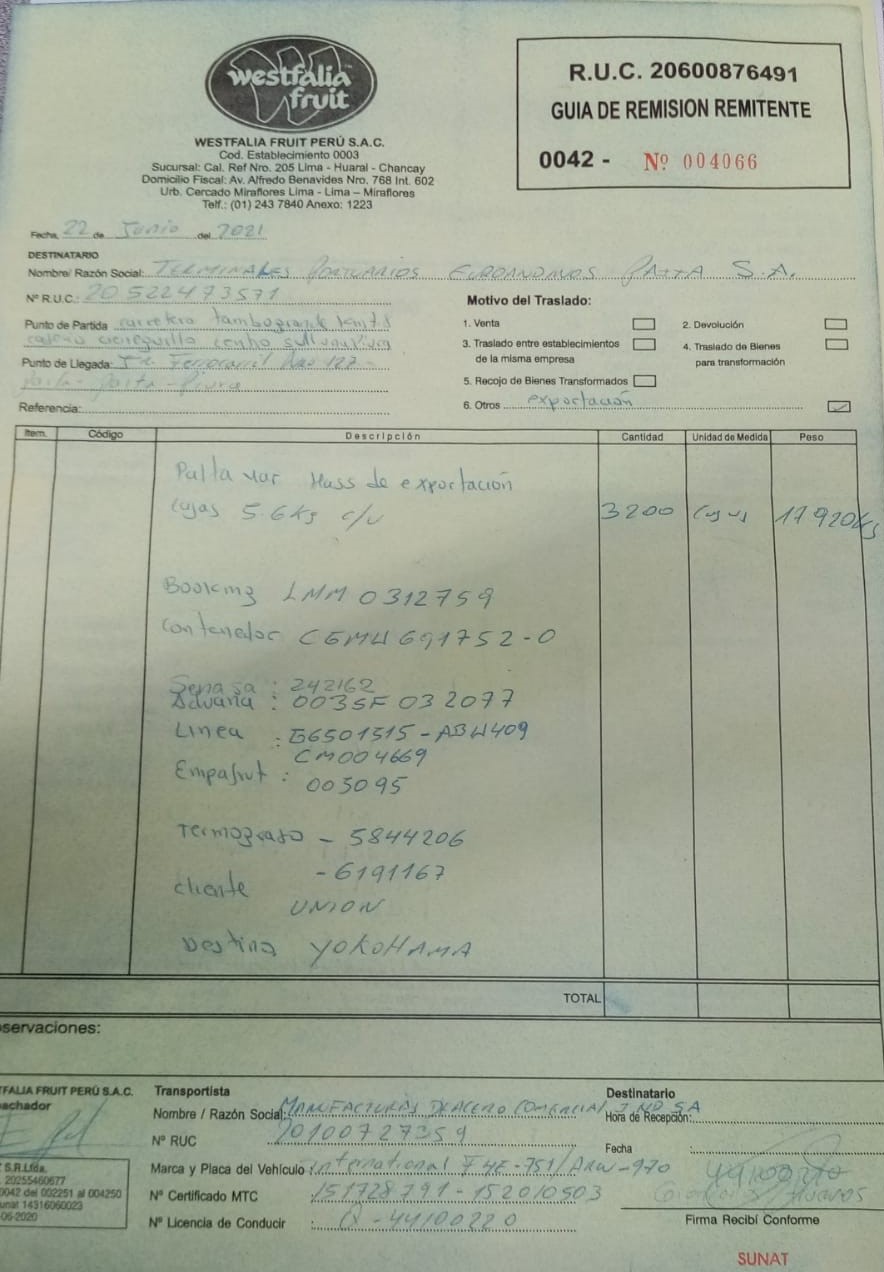 westfalia
fruit
WESTFALIA FRUIT PERÚ S.A.C.
Cod. Establecimiento 0003
Sucursal: Cal. Ref Nro. 205 Lima - Huaral - Chancay
Domicilio Fiscal: Av. Alfredo Benavides Nro. 768 Int. 602
Urb. Cercado Miraflores Lima - Lima – Miraflores
Telf.: (01) 243 7840 Anexo: 1223
R.U.C. 20600876491
GUIA DE REMISION REMITENTE
0042 - Nº 004066
Fecha, 22 de Junio del 2021
DESTINATARIO
Nombre/ Razón Social: TERMINALES PORTUARIOS EUROANDINOS PAITA S.A.
Nº R.U.C.: 20522473571
Punto de Partida carretera tambogrande
Punto de Llegada: Ferrocarril Nro 127
Paita - Paita - Piura
Referencia:
Motivo del Traslado:
1. Venta
2. Devolución
3. Traslado entre establecimientos
de la misma empresa
4. Traslado de Bienes
para transformación
5. Recojo de Bienes Transformados
6. Otros exportación
Item. Código Descripción Cantidad Unidad de Medida Peso
Palta var Hass de exportación
Cajas 5.6 Kg c/u 3200 Cajas 17920Kg
Booking LMM 0312759
Contenedor CGMU 691752-0
Senasa : 242162
Aduana : 003SF 032077
Linea : B6501515-ABW409
CM004669
Empafrut : 005095
Termografo - 5844206
- 6191167
cliente
UNION
Destino YOKOHAMA
TOTAL
servaciones:
TFALIA FRUIT PERÚ S.A.C.
pachador
Transportista
Nombre / Razón Social: MANUFACTURAS DE ACERO COMERCIAL IND SA
Nº RUC 20100727359
Marca y Placa del Vehículo International F4E-751/ANW-970
Nº Certificado MTC 151728791 - 152010503
Nº Licencia de Conducir : Q - 44100220
Destinatario
Hora de Recepción:
Fecha
Firma Recibí Conforme
S.R.Ltda.
20255460677
0042 del 002251 al 004250
unat 14316060023
-06-2020
SUNAT